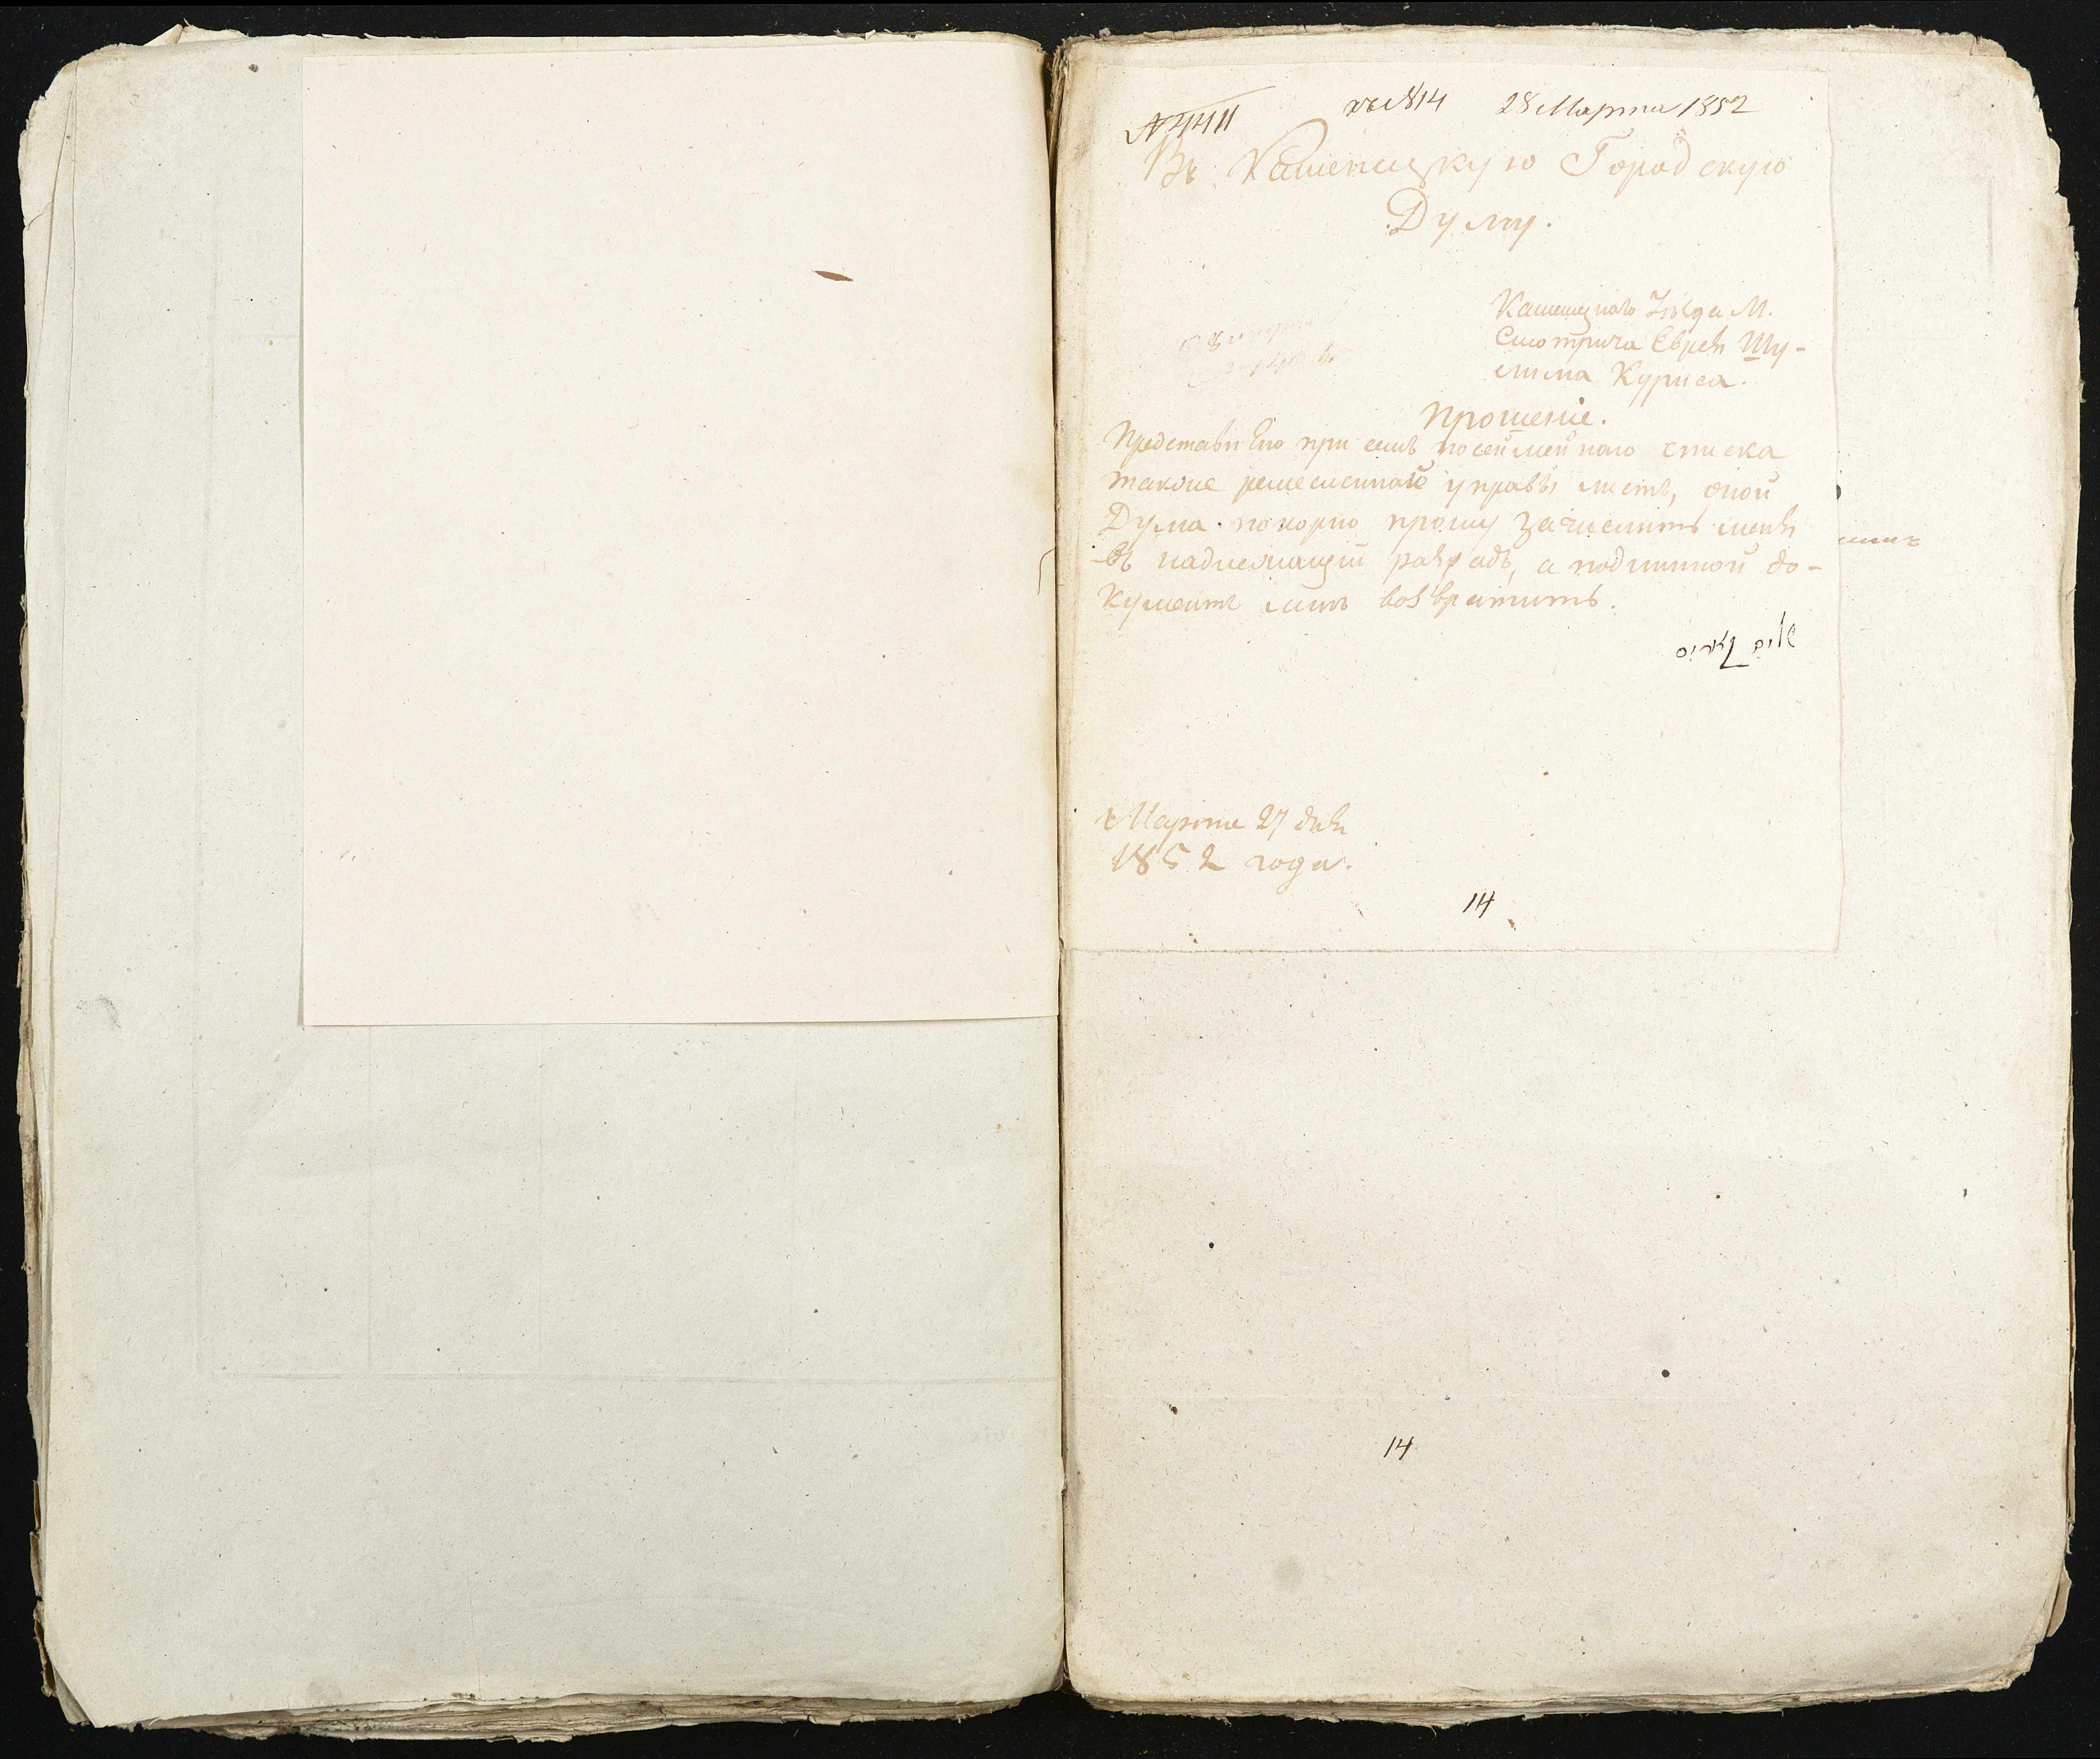 № 814 28 Марта 1852
Въ Каменецкую Городскую
Думу.
Каменецкаго Уѣзда М.
Смотрича Еврея Шу-
лима Куриса.
Прошеніе.
Представя Ею при семъ посеймейнаго списка
также ремесленной управы листъ, оной
Дума покорно прошу зачислить меня
въ надлежащій разрядъ, а подлинной до-
кументъ мнѣ возвратить.
Марта 27 дня
1852 года.
14
14